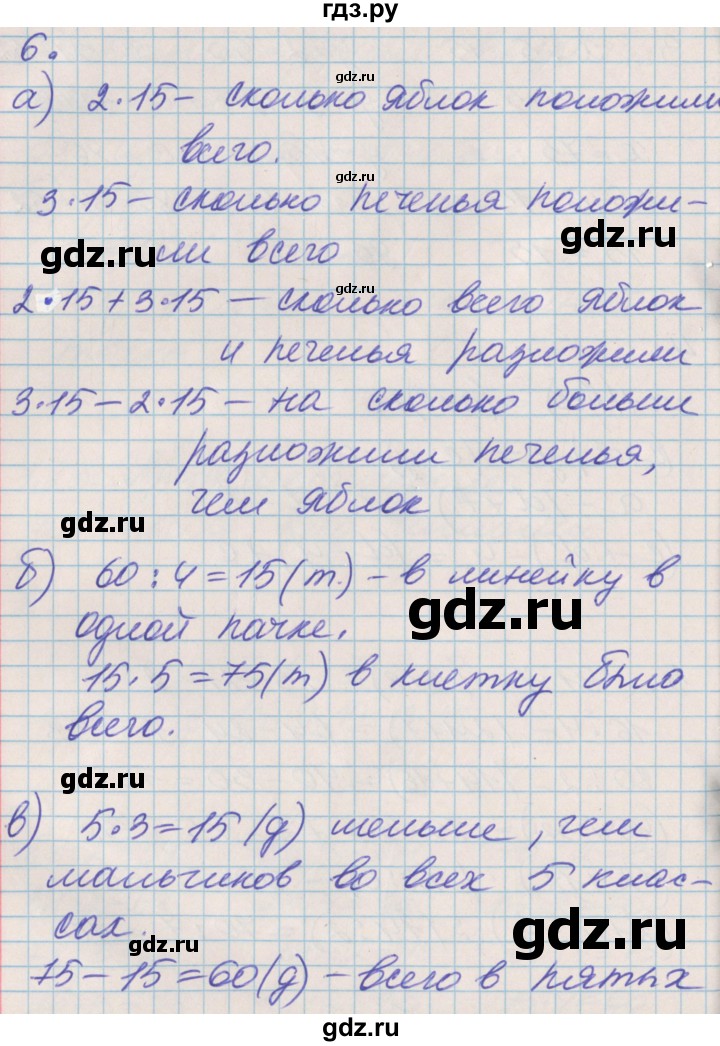 гдз.ру
6.
а) 2·15 – сколько яблок положили
всего.
3·15 – сколько печенья положи-
ли всего
2·15+3·15 – сколько всего яблок
и печенья разложили
3·15–2·15 – на сколько больше
разложили печенья,
чем яблок
б) 60:4=15(т.) – в линейку в
одной пачке.
15·5=75(т) в клетку было
всего.
в) 5·3=15(д) меньше, чем
мальчиков во всех 5 клас-
сах.
75–15=60(д) – всего в пятых
gdz.ru
gdz.ru
gdz.ru
gdz.ru
gdz.ru
gdz.ru
gdz.ru
gdz.ru
gdz.ru
gdz.ru
gdz.ru
gdz.ru